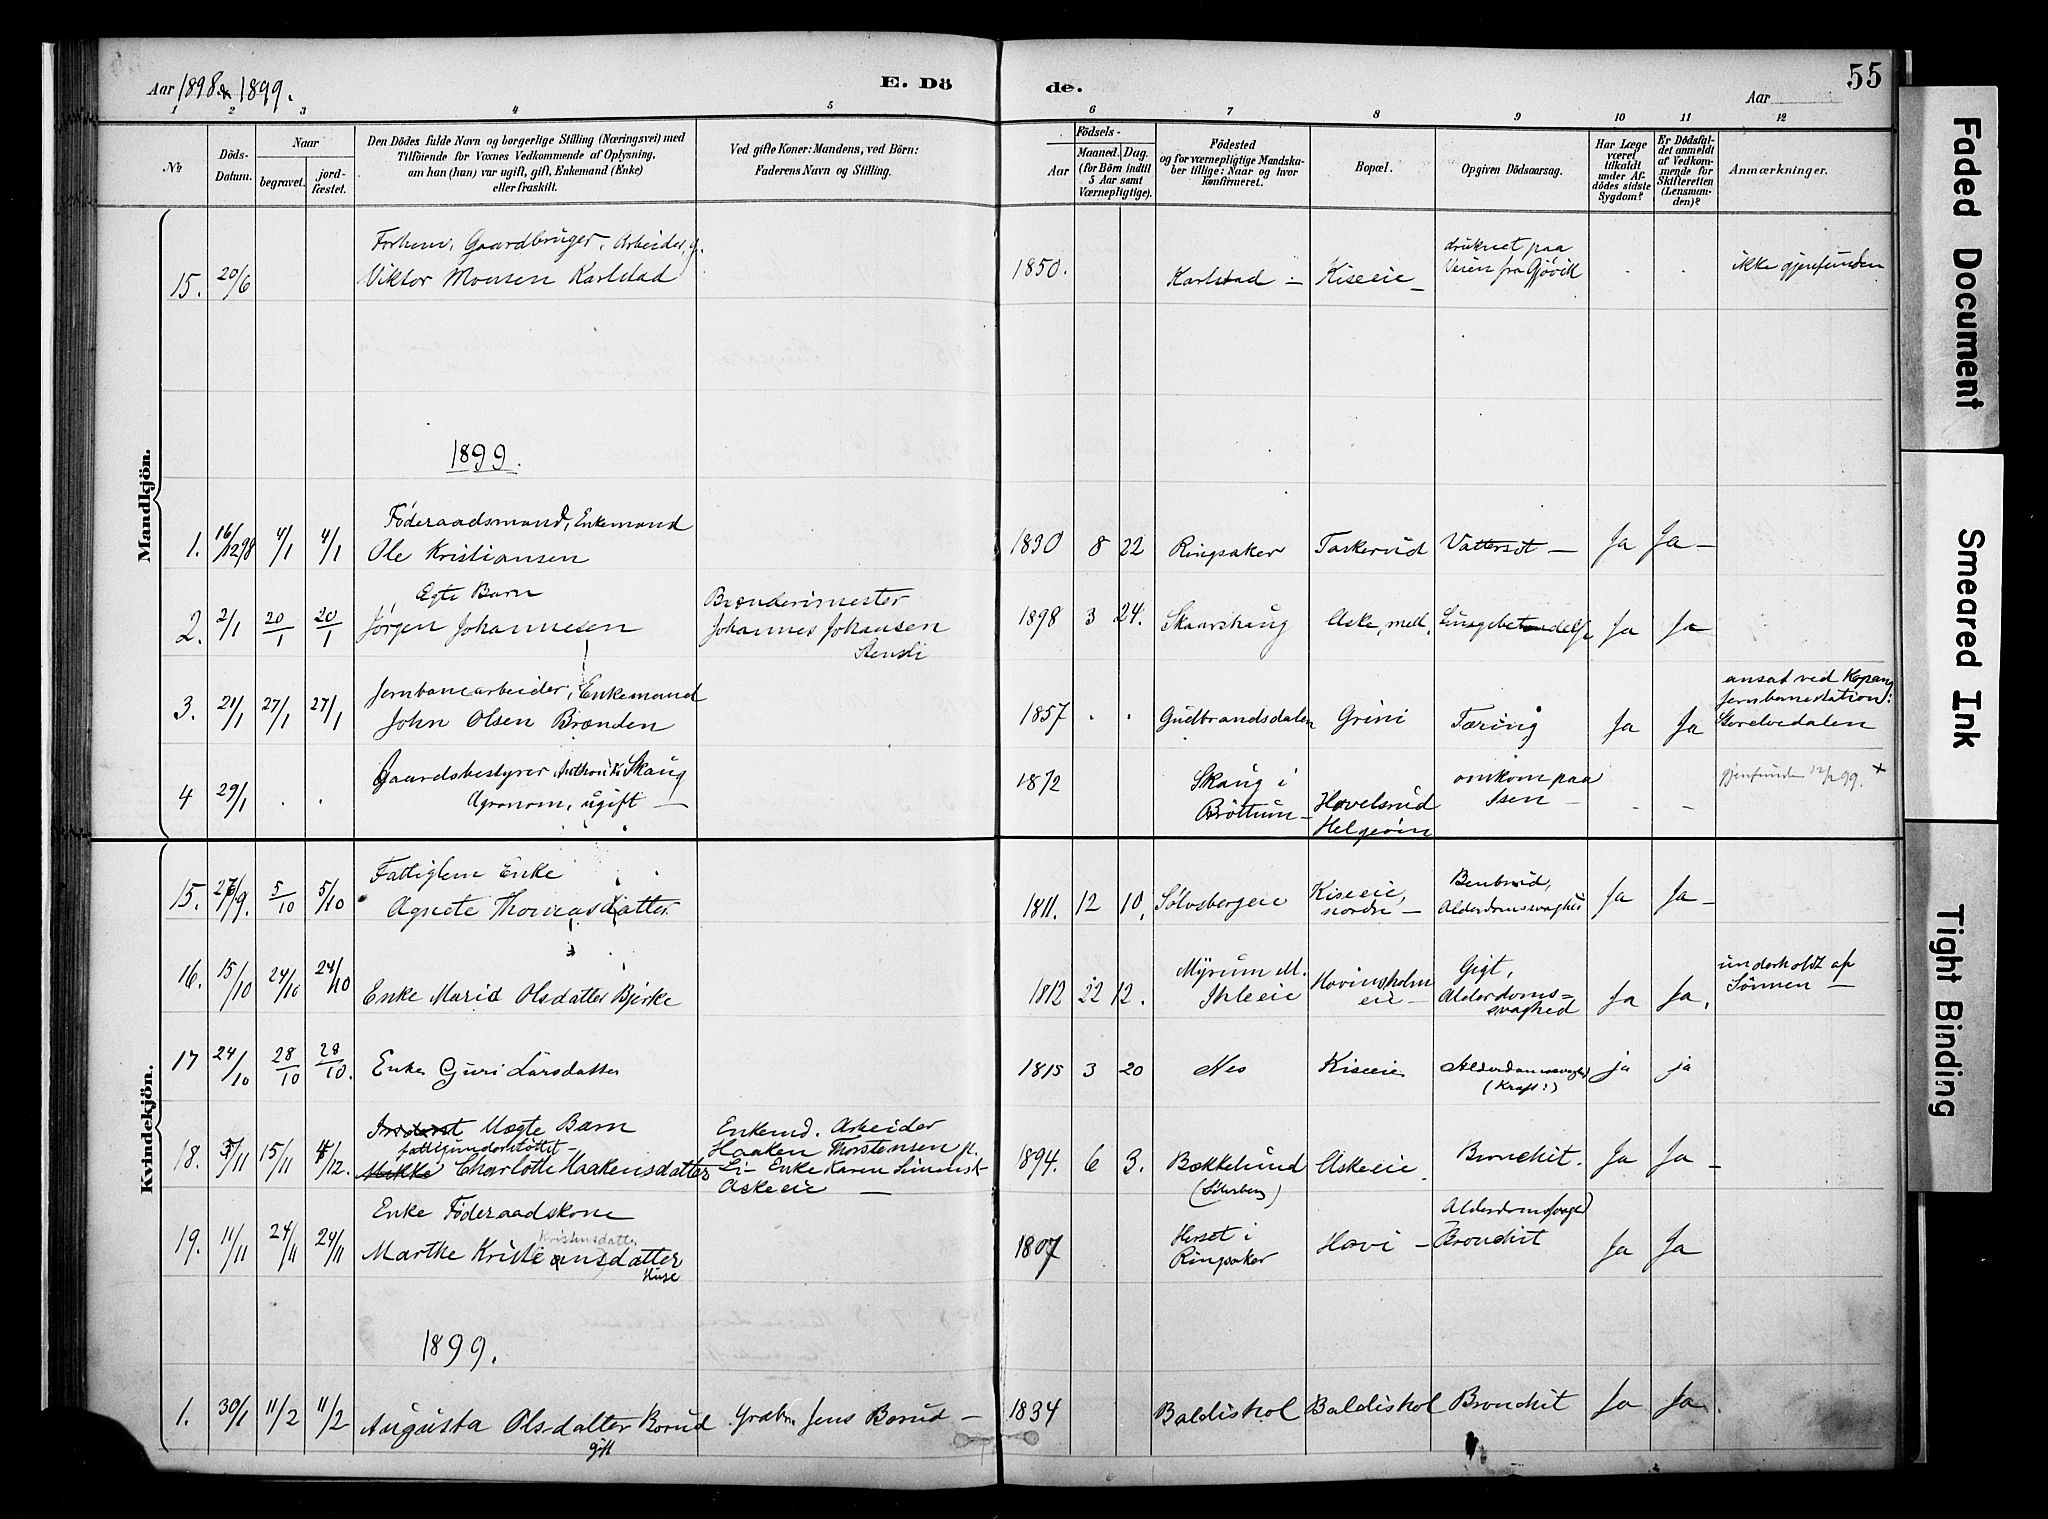 Aar 1898 & 1899.
E. Dö
de.
Aar
55
1 2 3 4 5 6 7 8 9 10 11 12
No.
Döds-Datum.
Naar
begravet.
jord-fæstet.
Den Dödes fulde Navn og borgerlige Stilling (Næringsvei) med
Tilföiende for Voxnes Vedkommende af Oplysning,
om han (hun) var ugift, gift, Enkemand (Enke)
eller fraskilt.
Ved gifte Koner: Mandens, ved Börn:
Faderens Navn og Stilling.
Födsels-
Aar
Maaned. Dag.
(for Börn indtil
5 Aar samt
Værnepligtige).
Födested
og for værnepligtige Mandska-
ber tillige: Naar og hvor
konfirmeret.
Bopæl.
Opgiven Dödsaarsag.
Har Læge
været
tilkaldt
under Af-
dödes sidste
Sygdom?
Er Dödsfal-
det anmeldt
af Vedkom-
mende for
Skifteretten
(Lensman-
den)?
Anmærkninger.
Mandkjön.
Forhen. Gaardbruger, Arbeider, g.
15. 20/6 Viktor Monsen Karlstad 1850. Karlstad — Kiseeie — druknet paa Veien fra Gjövik . . ikke gjenfunden
1899.
Föderaadsmand, Enkemand
1. 16/12 98 4/1 4/1 Ole Kristiansen 1830 8 22 Ringsaker Taskerud Vattersot — Ja Ja —
Ægte Barn
2. 2/1 20/1 20/1 Jörgen Johannesen Brænderimester Johannes Johansen Stensli 1898 3 24. Skaarshaug Aske, med. Lungebetændelse Ja Ja
Jernbanearbeider, Enkemand
3. 21/1 27/1 27/1 John Olsen Brænden 1857 . . Gudbrandsdalen Grini Tæring Ja Ja ansat ved Kopang Jernbanestation: Storelvedalen
Gaardsbestyrer Anthon Skaug
4 29/1 . . Agronom, ugift — 1872 Skaug i Bröttum — Hovelsrud Helgeöin omkom paa Isen — — — gjenfunden 12/2 99. +
Kvindekjön.
Fattiglem Enke
15. 27/9. 5/10 5/10 Agnete Thomasdatter 1811. 12 10. Sölvsbergeie Kiseeie, nordre — Benbrud, Alderdomssvaghed Ja Ja —
16. 15/10 24/10 24/10 Enke Marie Olsdatter Bjerke 1812 22 12. Myrum M. Ihleeie Hovinsholm eie — Gigt, Alderdoms=svaghed Ja Ja, underholdt af Sönnen —
17 24/10 28/10 28/10. Enke Guri Larsdatter 1815 3 20 Nes Kiseeie Alderdomssvaghed (Kraft:) ja ja
Inderst Uægte Barn
fattigunderstöttet
18. 5/11 15/11 4/12. Charlotte Haakensdatter Enkemd. Arbeider Haaken Thorstensen Li — Enke Karen Askeeie — 1894. 6 3. Bækkelund (Sölvsberg) Askeeie Bronchit. Ja Ja —
Enke Föderaadskone
Kristensdatter
19. 11/11 24/11 24/11 Marthe Kristiansdatter Huse 1807 Herset i Ringsaker Hovi — Alderdomssvaghed Bronchit Ja Ja
1899.
1. 30/1 11/2 11/2 Augusta Olsdatter Borud gift Grdbr. Jens Borud — 1834 Baldishol Baldishol Bronchit Ja Ja.
Faded Document
Smeared Ink
Tight Binding